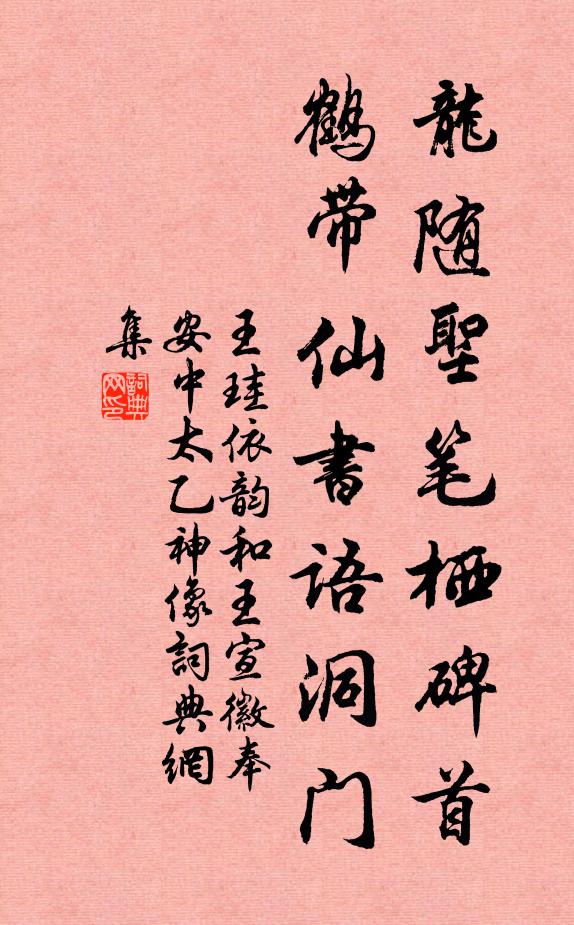 龍随聖笔栖碑首
鶴带仙書語洞门
王珪依韵和王宣徽奉
安中太乙神像詞典網
集
詞典
网印